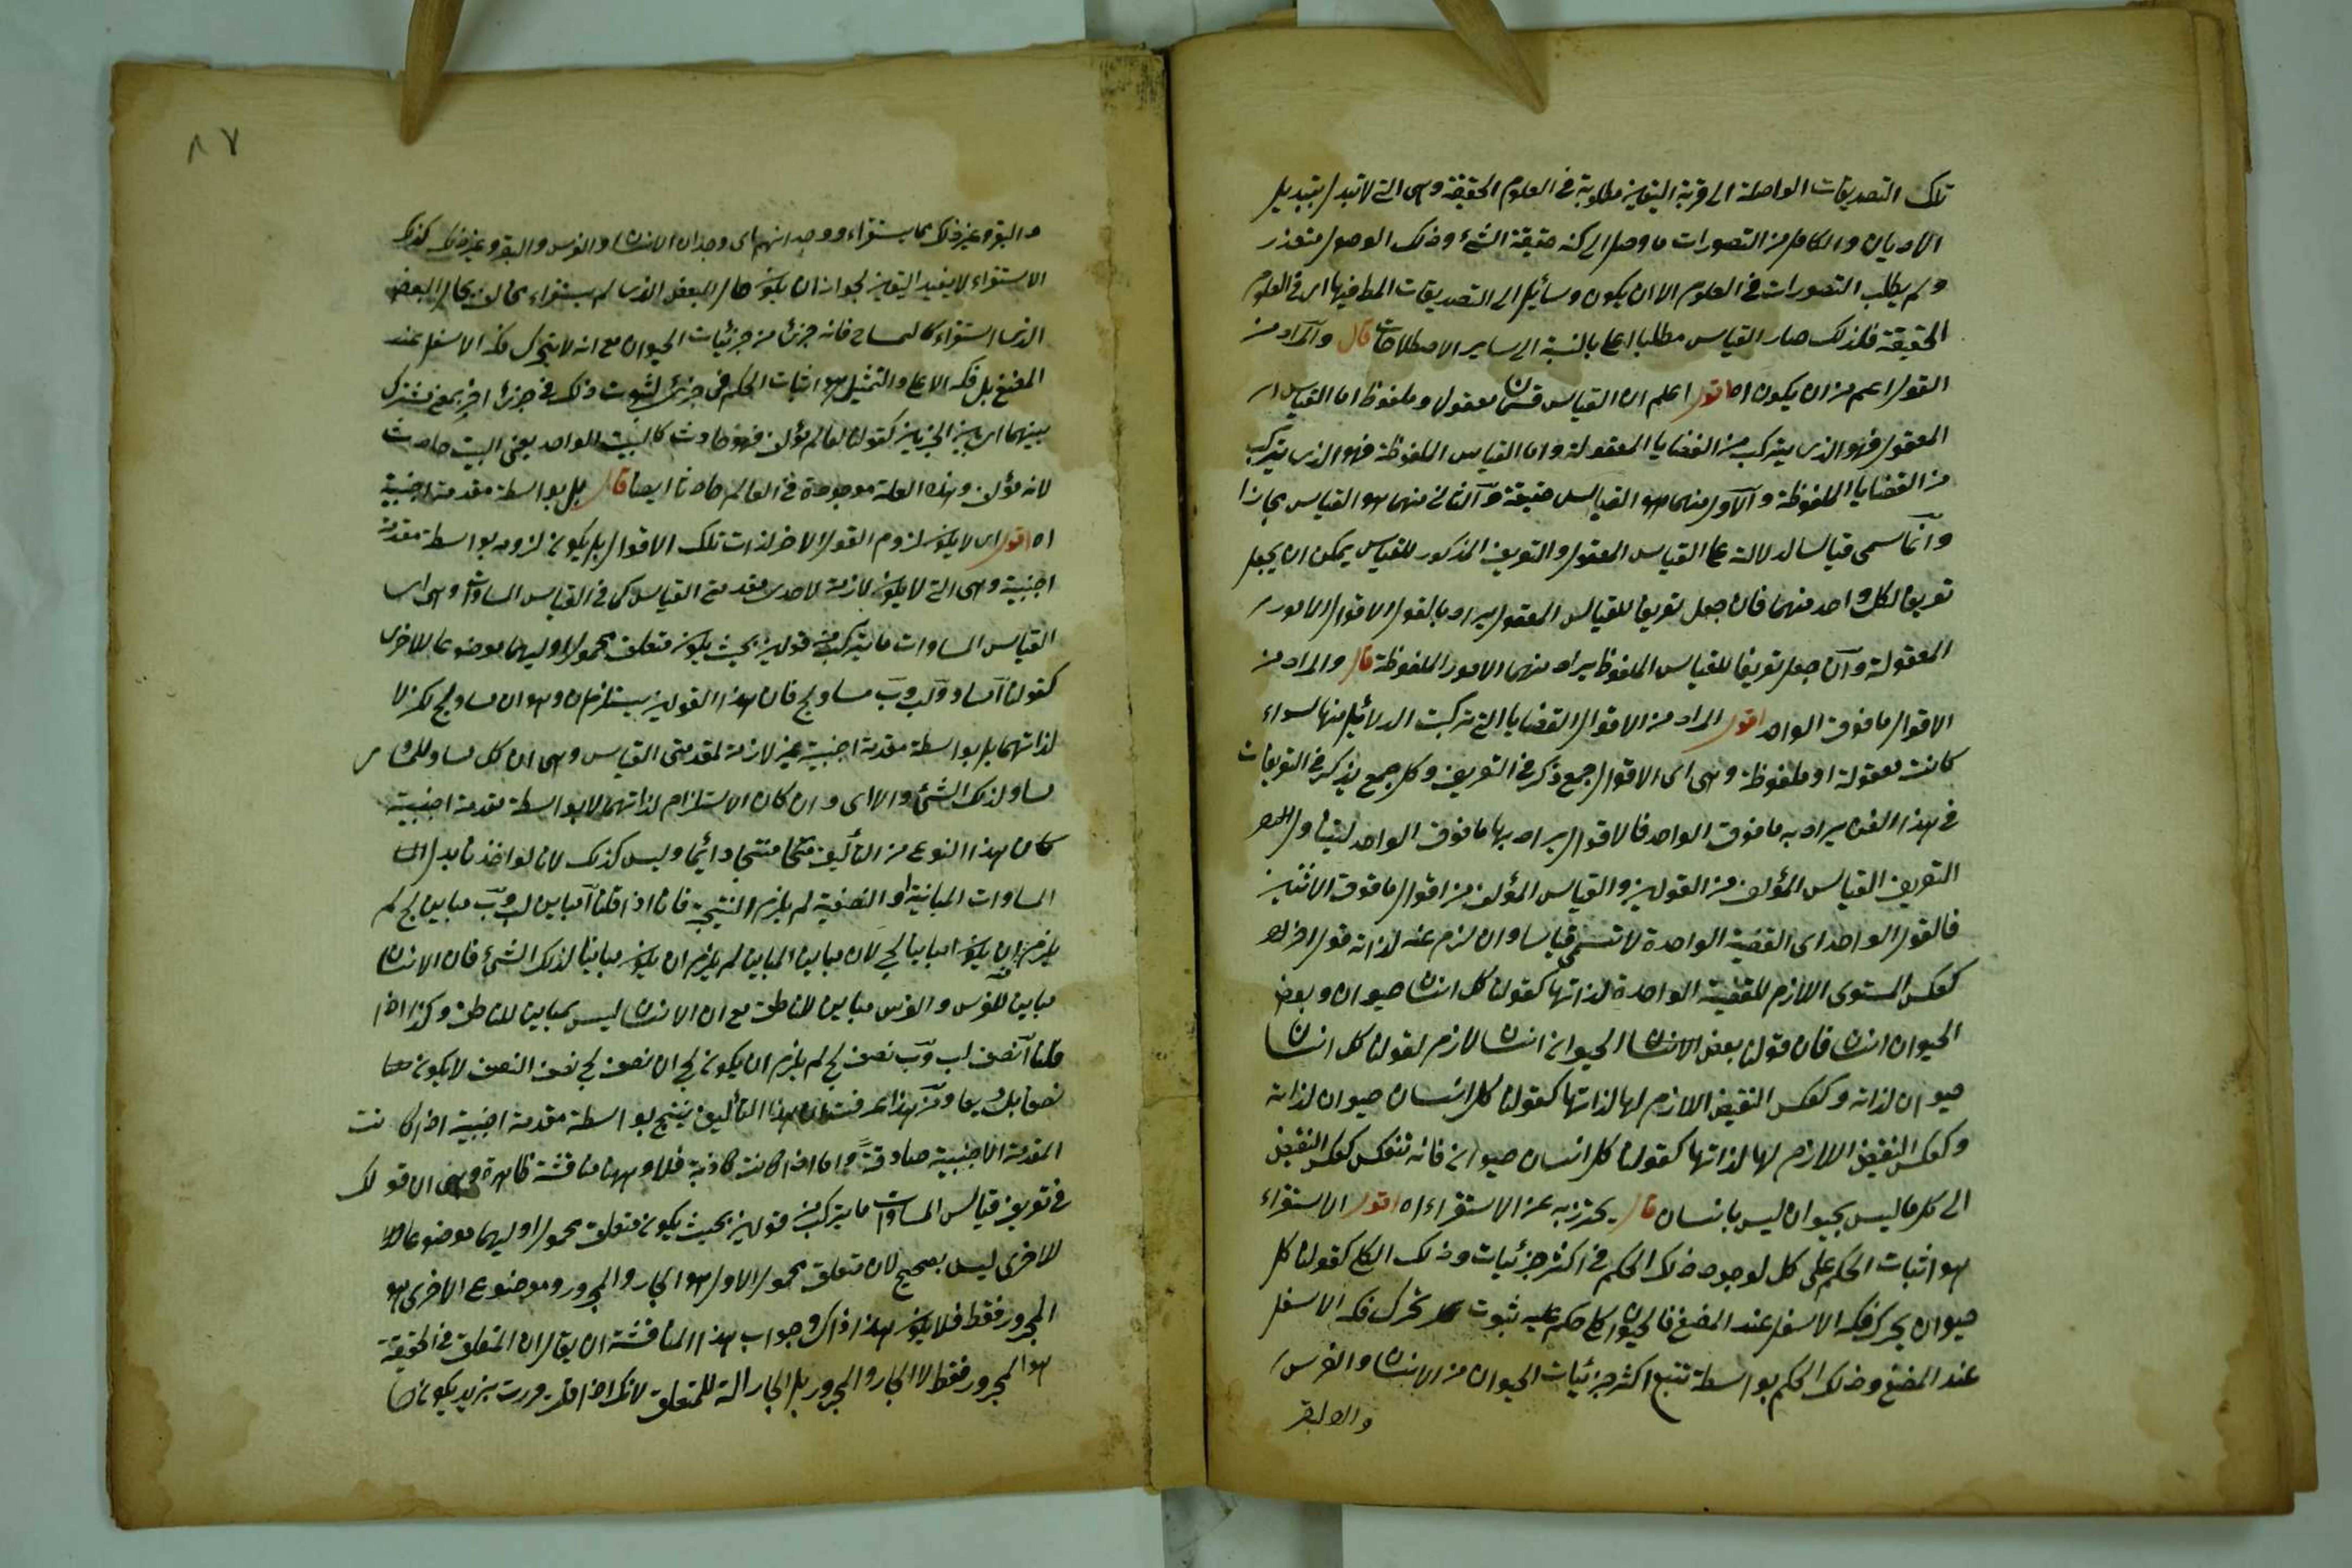 تلك التصديقات الواصلة الى مرتبة اليقين مطلوبة فى العلوم الحقيقة وهى التى لا تبدل بتبديل
الاديان والكامل من التصورات ما وصل الى كنه حقيقة الشئ وذلك الوصول متعذر
ولم يطلب التصورات فى العلوم الا ان يكون وسائل الى التصديقات المط فيها اى فى العلوم
الحقيقة فلذلك صار القياس مطلبا اعلى بالنسبة الى ساير الاصطلاحات قال والمراد من
القول اعم من ان يكون اه اقول اعلم ان القياس قسمان معقول وملفوظ اما القياس
المعقول فهو الذى يتركب من القضايا المعقولة واما القياس الملفوظة فهو الذى يتركب
من القضايا الملفوظة والاول منهما هو القياس حقيقة والثانى منهما هو القياس مجازا
وانما سمى قياسا لدلالة على القياس المعقول والتعريف المذكور للقياس يمكن ان يجعل
تعريفا لكل واحد منهما فان جعل تعريفا للقياس المعقول يراد بالقول الاقوال الامور
المعقولة وان جعل تعريفا للقياس الملفوظ يراد منهما الامور الملفوظة قال والمراد من
الاقوال ما فوق الواحد اقول المراد من الاقوال القضايا التى تركبت الدلائل منها سواء
كانت معقولة او ملفوظة وهى اى الاقوال جمع ذكر فى التعريف وكل جمع يذكر فى التعريفات
فى هذا الفن يراد به ما فوق الواحد فالاقوال يراد بها ما فوق الواحد ليتناول
التعريف القياس المؤلف من القولين والقياس المؤلف من اقوال ما فوق الاثنين
فالقول الواحد اى القضية الواحدة لا تسمى قياسا وان لزم عنه لذاته قول اخر
كعكس المستوى اللازم للقضية الواحدة لذاتها كقولنا كل انسان حيوان وبعض
الحيوان انسان فان قولنا بعض الحيوان انسان لازم لقولنا كل انسان
حيوان لذاته وكعكس النقيض اللازم لها لذاتها كقولنا كل انسان حيوان لذاته
وكعكس النقيض اللازم لها لذاتها كقولنا كل انسان حيوان فانه تنعكس كعكس النقيض
الى كل ما ليس بحيوان ليس بانسان قال يحترز به عن الاستقراء اه اقول الاستقراء
هو اثبات الحكم على كل لوجود ذلك الحكم فى اكثر جزئيات وذلك الكل كقولنا كل
حيوان يحرك فكه الاسفل عند المضغ فالحيوان كل حكم عليه ثبوت تحرك فكه الاسفل
عند المضغ وذلك الحكم بواسطة تتبع اكثر جزئيات الحيوان من الانسان والفرس
والبقر
٨٧
والبقر وغير ذلك مما يستقراء ووجد انهم اى وجدان الانسان والفرس والبقر وغير ذلك كذلك
الاستقراء لا يفيد اليقين لجواز ان يكون حال البعض الذى لم يستقراء مخالف بحال البعض
الذى استقراء كالتمساح فانه جزئ من جزئيات الحيوان مع انه لا يتحرك فكه الاسفل عند
المضغ بل فكه الاعلى والتمثيل هو اثبات الحكم فى جزئى لثبوت ذلك فى جزئ اخر بمعنى مشترك
بينهما اى بين الجزئين كقولنا العالم مؤلف فهو حادث كالبيت الواحد يعنى البيت حادث
لانه مؤلف وهذه العلة موجودة فى العالم حادثا ايضا قال بل بواسطة مقدمة اجنبية
اه اقول اى لا يكون لزوم القول الاخر لذات تلك الاقوال بل يكون لزومه بواسطة مقدمة
اجنبية وهى التى لا يكون لازمة لاحدى مقدمتى القياس كما فى القياس المساوات وهى اى
القياس المساوات ما يتركب من قولين بحيث يكون متعلق محمول اوليهما موضوعا للاخرى
كقولنا آ مساو لب وب مساو لج فان هذا القولين يستلزمان وهو ان مساو لج لكن لا
لذاتهما بل بواسطة مقدمة اجنبية غير لازمة لمقدمتى القياس وهى ان كل مساو للمساوى
مساو لذلك الشئ والا اى وان كان الاستلزام لذاتهما لا بواسطة مقدمة اجنبية
كان هذا النوع من التأليف منتجا دائما وليس كذلك لانا لو اخذنا بدل
المساوات المباينة او النصفية لم يلزم النتيجة فانا اذا قلنا آ مباين لب وب مباين لج لم
يلزم ان يكون آ مباينا لج لان مباين المباين لم يلزم ان يكون مباينا لذلك الشئ فان الانسان
مباين للفرس والفرس مباين للناطق مع ان الانسان ليس بمباين للناطق وكذا اذا
قلنا آ نصف لب وب نصف لج لم يلزم ان يكون لج ان نصف لج نصف النصف لا يكون
نصفا بل ربعا ومن هذا عرفت ان هذا التأليف ينتج بواسطة مقدمة اجنبية اذا كانت
المقدمة الاجنبية صادقة واما اذا كانت كاذبة فلا وههنا مناقشة ظاهرة وهى ان قولك
فى تعريف قياس المساوات ما يتركب من قولين بحيث يكون متعلق محمول اوليهما موضوعا
للاخرى ليس بصحيح لان متعلق محمول الاول هو الجار والمجرور وموضوع الاخرى هو
المجرور فقط فلا يكون هذا ذاك وجواب هذا المناقشة ان يقال ان المتعلق فى الحقيقة
هو المجرور فقط لا الجار والمجرور بل الجار الة للمتعلق لانك اذا قلت مررت بزيد يكون